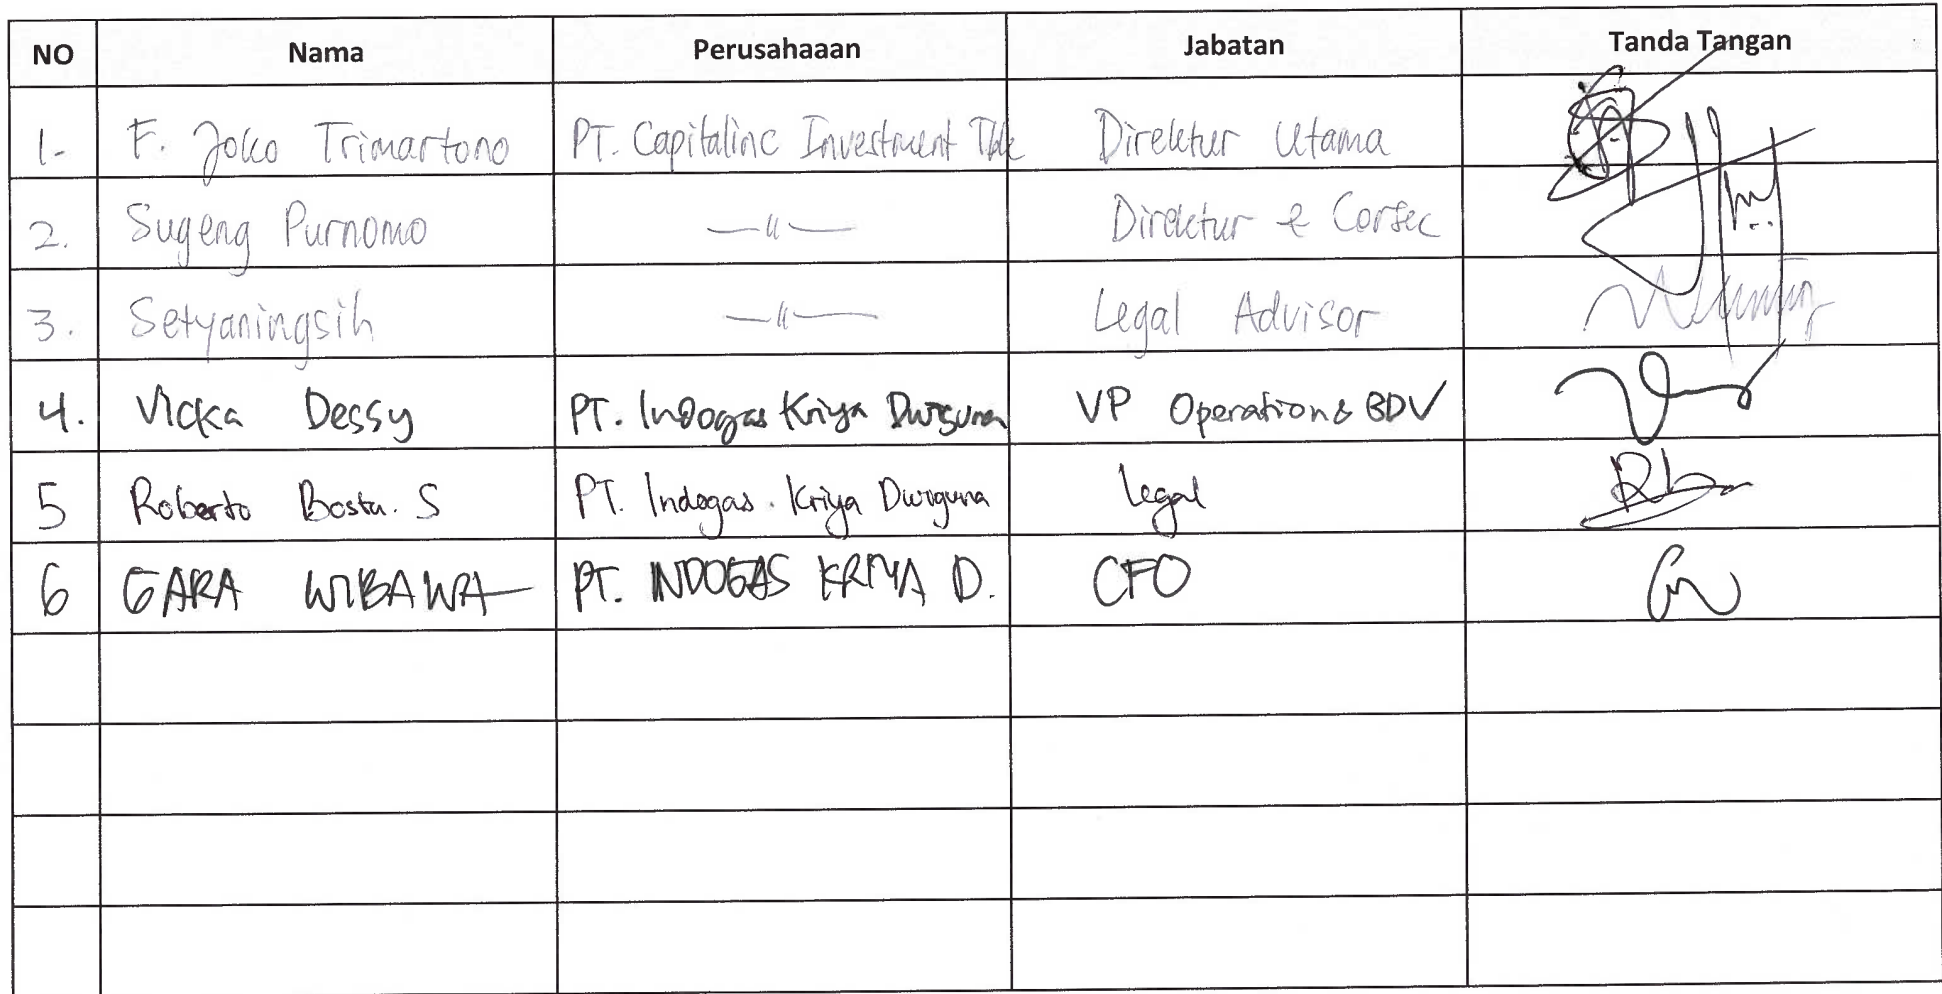 NO Nama Perusahaaan Jabatan Tanda Tangan
1- F. Joko Trimartono PT. Capitalinc Investment Tbk Direktur Utama
2. Sugeng Purnomo —"— Direktur & Corsec
3. Setyaningsih —"— Legal Advisor
4. Vicka Dessy PT. Indogas Kriya Dwiguna VP Operation & BDV
5 Roberto Bosta. S PT. Indogas. Kriya Dwiguna Legal
6 GARA WIBAWA PT. INDOGAS KRIYA D. CFO